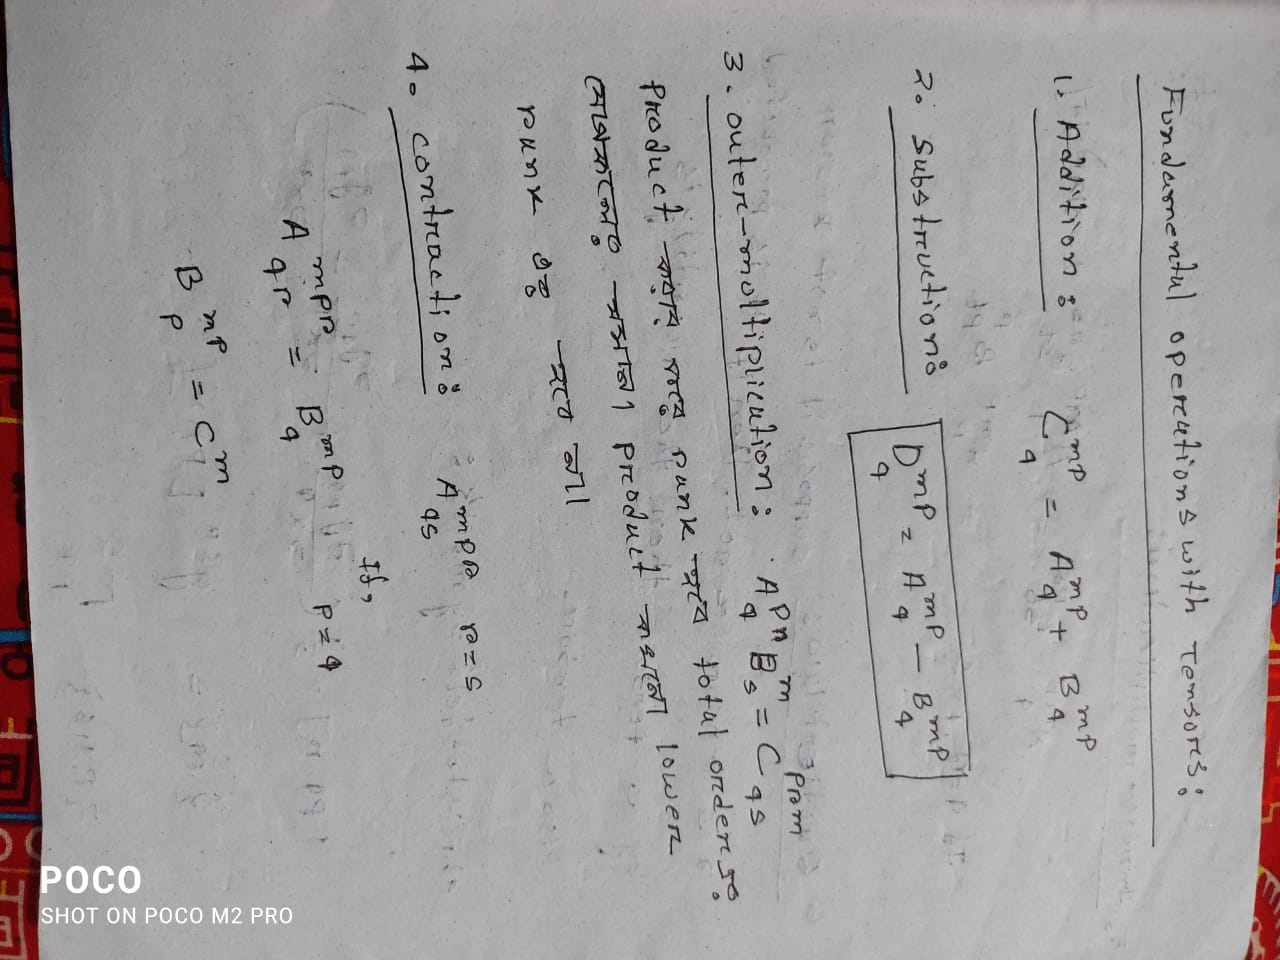 Fundamental operations with Tensors:
1. Addition: C^{mp}_{q} = A^{mp}_{q} + B^{mp}_{q}
2. Substruction: D^{mp}_{q} = A^{mp}_{q} - B^{mp}_{q}
3. outer-moltiplication: A^{pr}_{q} B^{m}_{s} = C^{prm}_{qs}
Product করার পরে rank হবে total order এর
যোগফলের সমান। product কখনো lower
rank এর হবে না।
4. contraction: A^{mpr}_{qs} r=s
If,
A^{mpr}_{qr} = B^{mp}_{q} p=q
B^{mp}_{p} = C^{m}
POCO
SHOT ON POCO M2 PRO